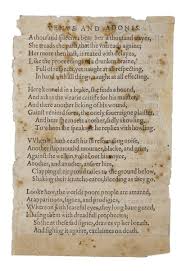 VENVS AND ADONIS.
A thousand spleenes beare her a thousand wayes,
She treads the path, that she vntreads againe;
Her more then hast, is mated with delayes,
Like the proceedings of a drunken braine,
Full of respects, yet naught at all respecting,
In hand with all things, naught at all effecting.
Here kenneld in a brake, she finds a hound,
And askes the wearie caitiffe for his maister,
And there another licking of his wound,
Gainst sores, the onely soueraigne plaister.
And here she meets another, sadly skowling,
To whom she speaks, he replies with howling.
VVhen he hath ceast his ill resounding noise,
Another flapmouthd mourner, blacke, and grim,
Against the welkin, volies out his voyce,
Another, and another, answer him,
Clapping their proud tailes to the ground below,
Shaking their scratcht-eares, bleeding as they go.
Looke how, the worlds poore people are amazed,
At apparitions, signes, and prodigies,
VVhereon with fearefull eyes, they long haue gazed,
Infusing them with dreadfull prophecies;
So she at these sad signes, drawes vp her breath,
And sighing it againe, exclaims on death.